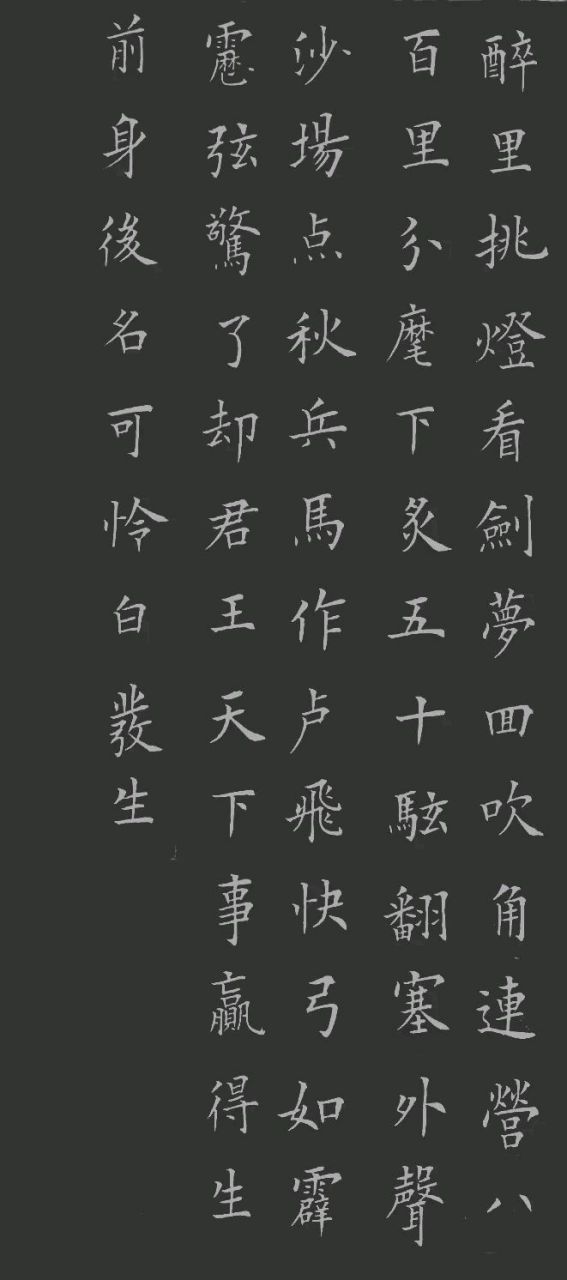 醉里挑燈看劍夢回吹角連營八
百里分麾下炙五十翻塞外聲
沙場点秋兵馬作卢飛快弓如霹
靂弦驚了却君王天下事贏得生
前身後名可怜白發生